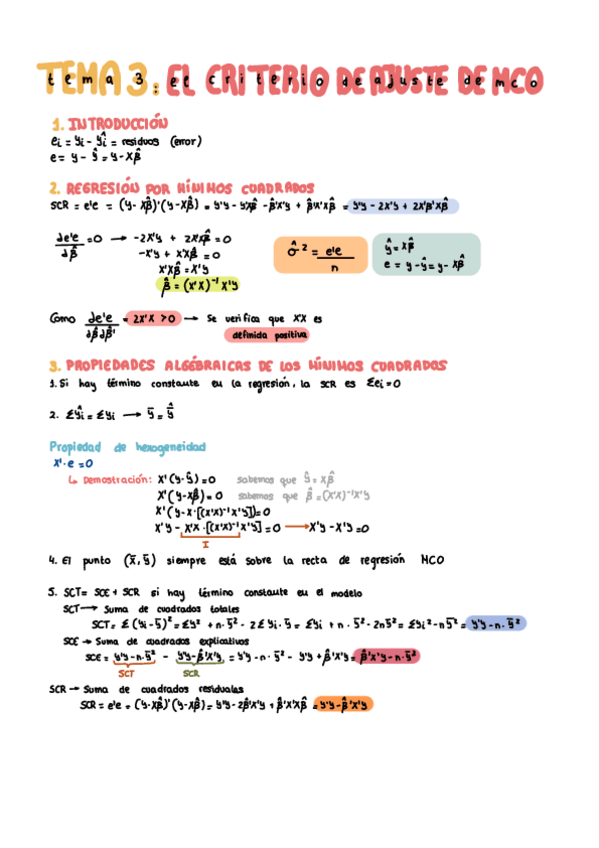 TEMA 3: EL CRITERIO DE AJUSTE DE MCO
tema 3: el criterio de ajuste de mco
1. INTRODUCCIÓN
ei = yi - ŷi = residuos (error)
e = y - ŷ = y - Xβ̂
2. REGRESIÓN POR MÍNIMOS CUADRADOS
SCR = e'e = (y - Xβ̂)'(y - Xβ̂) = y'y - y'Xβ̂ - β̂'X'y + β̂'X'Xβ̂ = y'y - 2X'y + 2X'β'Xβ̂
de'e/dβ̂ = 0 → -2X'y + 2X'Xβ̂ = 0
-X'y + X'Xβ̂ = 0
X'Xβ̂ = X'y
β̂ = (X'X)⁻¹ X'y
σ̂² = e'e/n
ŷ = Xβ̂
e = y - ŷ = y - Xβ̂
Como de'e/dβ̂dβ̂' = 2X'X > 0 → Se verifica que X'X es
definida positiva
3. PROPIEDADES ALGÉBRAICAS DE LOS MÍNIMOS CUADRADOS
1. Si hay término constante en la regresión, la SCR es Σei = 0
2. Σŷi = Σyi → ȳ = ŷ
Propiedad de hexogeneidad
X'·e = 0
↳ Demostración: X'(y - ŷ) = 0 sabemos que ŷ = Xβ̂
X'(y - Xβ̂) = 0 sabemos que β̂ = (X'X)⁻¹X'y
X'(y - X·[(X'X)⁻¹X'y]) = 0
X'y - X'X·[(X'X)⁻¹X'y] = 0 → X'y - X'y = 0
I
4. El punto (x̄, ȳ) siempre está sobre la recta de regresión MCO
5. SCT = SCE + SCR si hay término constante en el modelo
SCT → Suma de cuadrados totales
SCT = Σ(yi - ȳ)² = Σy² + n·ȳ² - 2Σyi·ȳ = Σyi + n·ȳ² - 2nȳ² = Σyi² - nȳ² = y'y - n·ȳ²
SCE → Suma de cuadrados explicativos
SCE = y'y - n·ȳ² - y'y - β̂'X'y = y'y - n·ȳ² - y'y + β̂'X'y = β̂'X'y - n·ȳ²
SCT SCR
SCR → Suma de cuadrados residuales
SCR = e'e = (y - Xβ̂)'(y - Xβ̂) = y'y - 2β̂'X'y + β̂'X'Xβ̂ = y'y - β̂'X'y